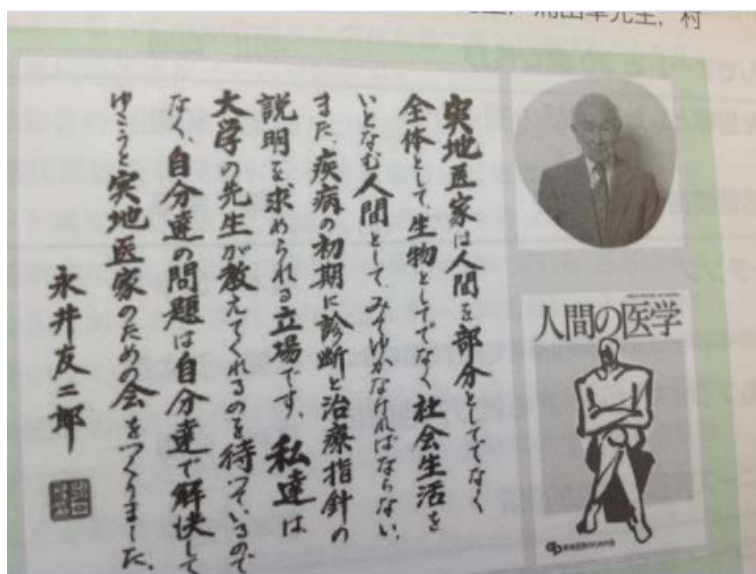 実地医家は人間を部分としてでなく
全体として、生物としてでなく社会生活を
いとなむ人間として、みてゆかなければならない、
また、疾病の初期に診断と治療指針の
説明を求められる立場です。私達は
大学の先生が教えてくれるのを待っているので
なく、自分達の問題は自分達で解決して
ゆこうと実地医家のための会をつくりました。
永井友二郎
人間の医学